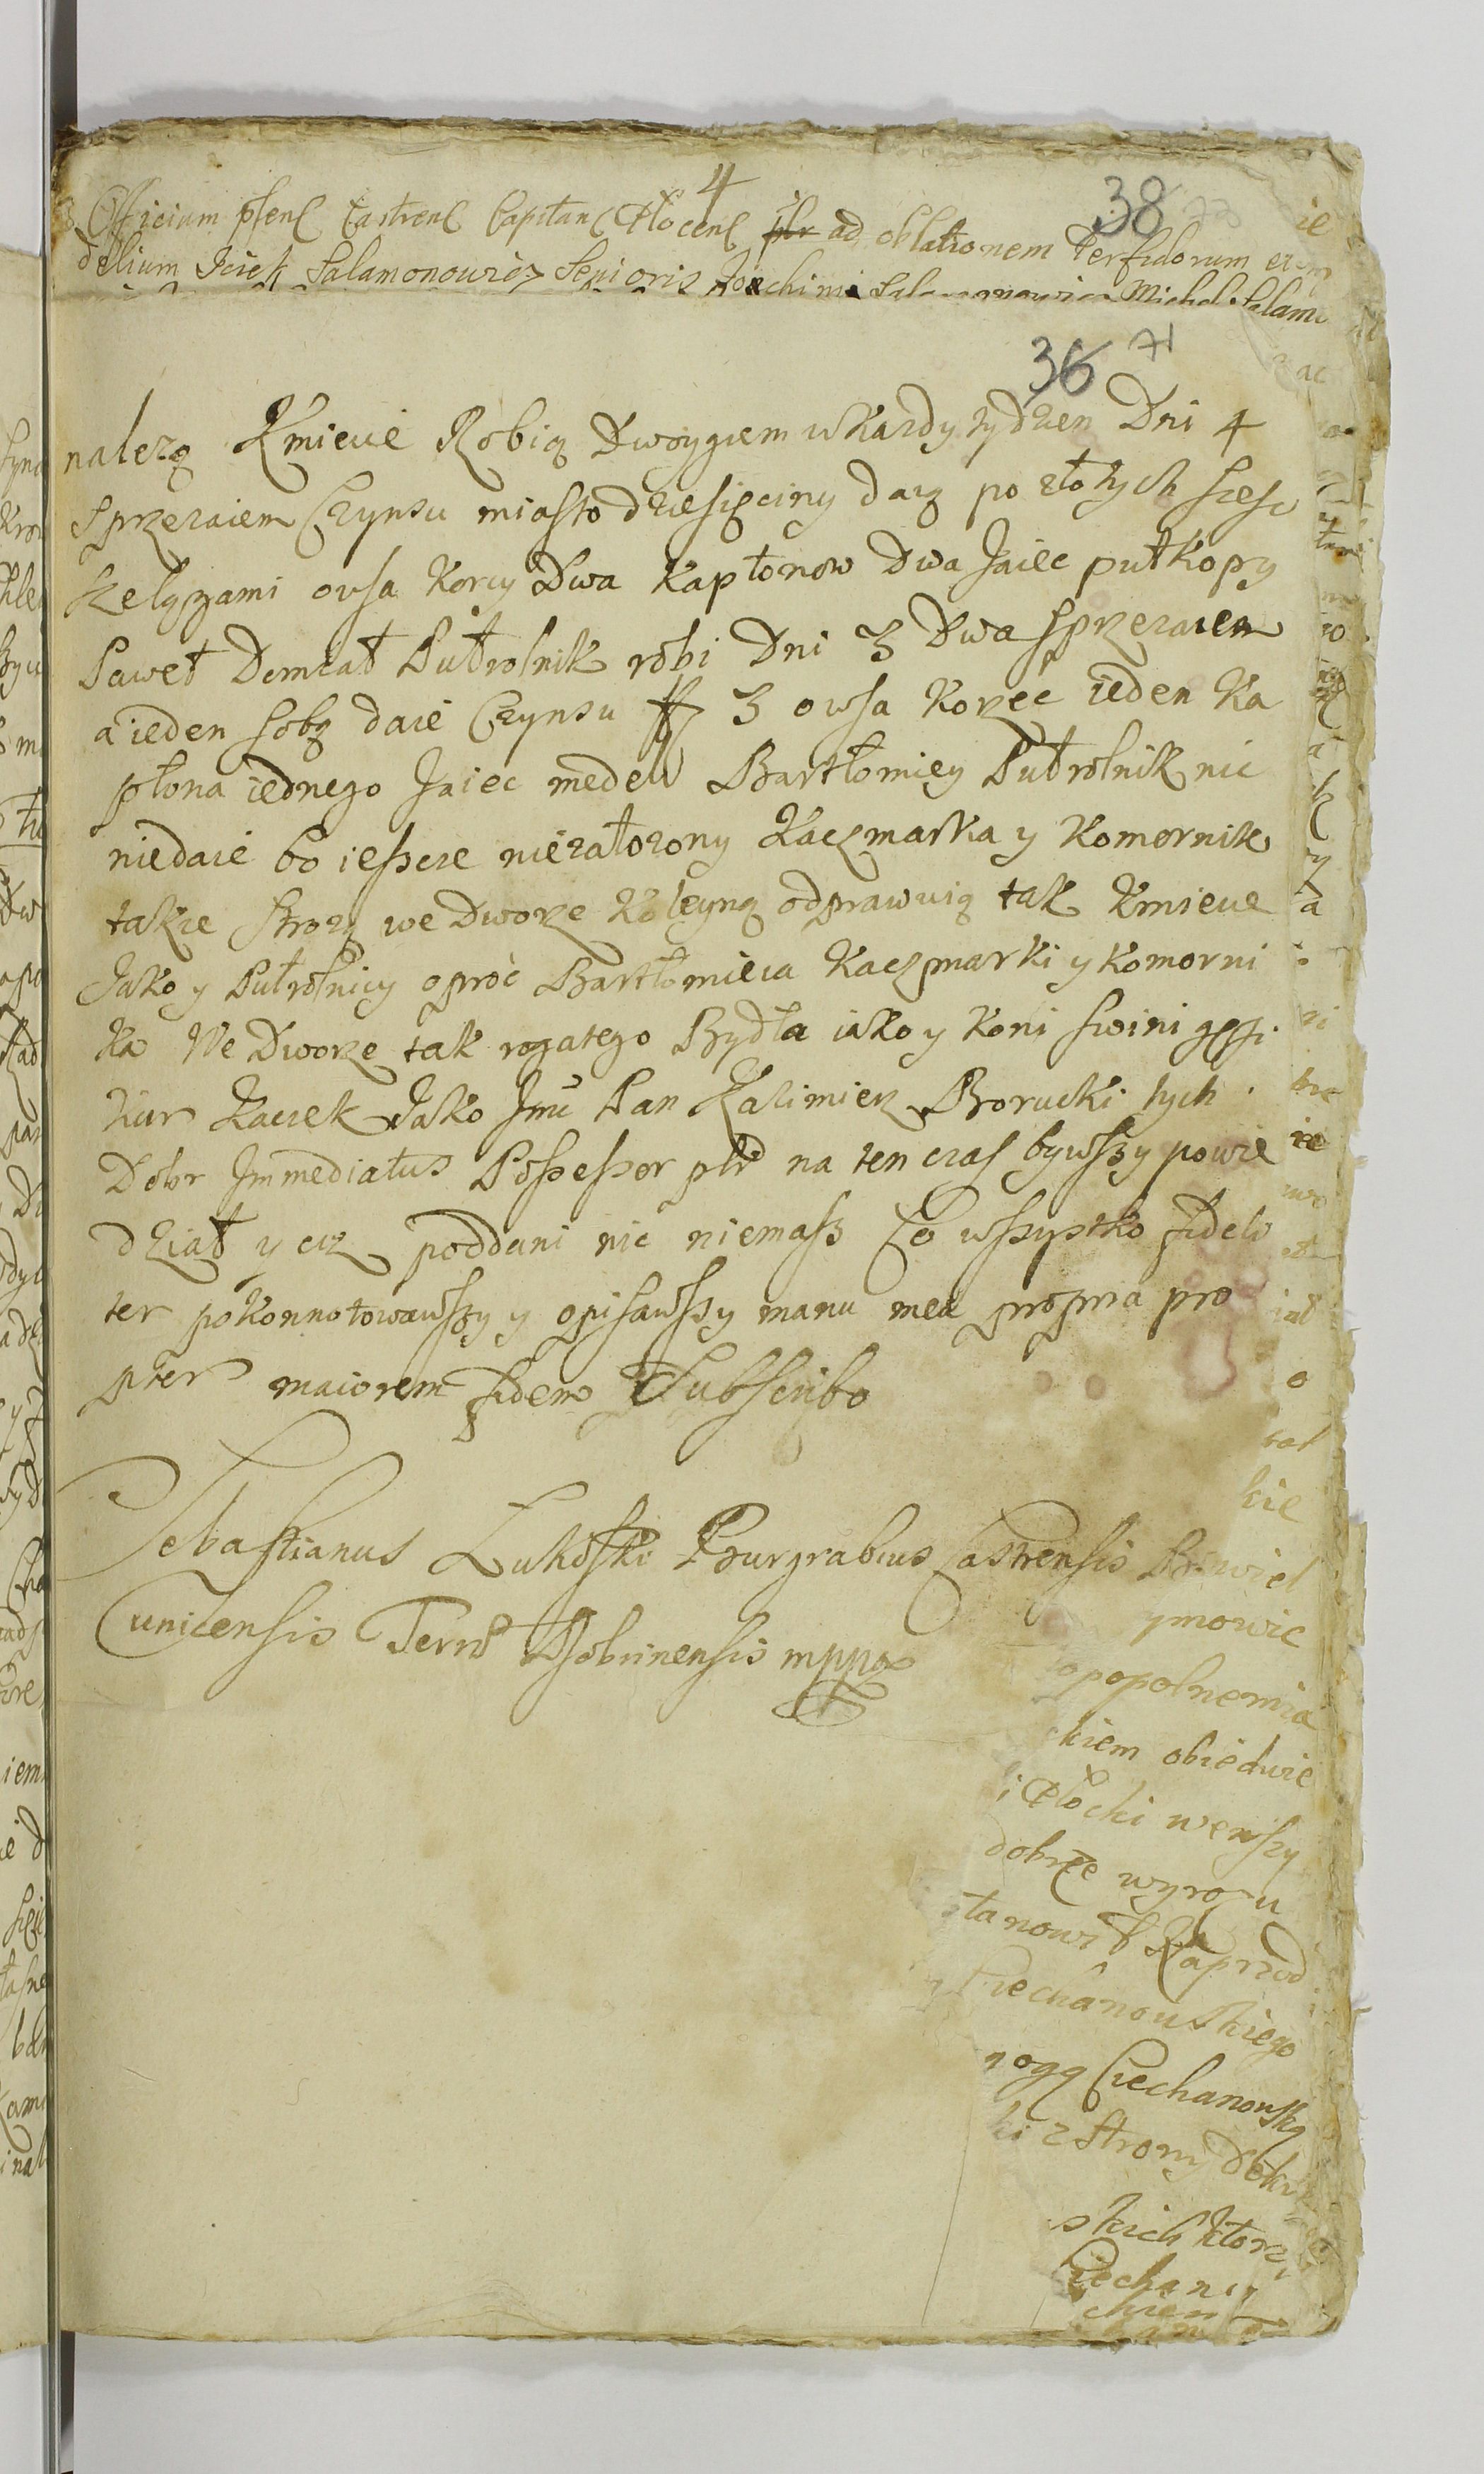 4
38
Officium pſenſ Caſtrenſ Capitan Płocenſ ad oblationem Perfidorum
delium Iciek Salamonowicz Senioris Joachimi Salamonowicz Michel Salamo
36 71
nalezą Kmiecie Robią Dwoygiem w Kazdy tydzien Dni 4
Sprzezaiem Czynsu miasto dzieſięciny daią po złotych ſzeſc
owſa Korcy Dwa Kapłonow Dwa Jaiec pułkopy
Paweł Domzał Pułrolnik robi Dni 3 Dwa ſprzezaiem
a ieden ſobą daie Czynsu ff 3 owſa Korzec ieden Ka
płona iednego Jaiec mędel Bartłomiey Pułrolnik nic
niedaie bo ieſzcze niezałozony Kaczmarka y Komornik
takze ſtrozą we Dworze Koleyną odprawuią tak Kmiecie
Jako y Pułrolnicy oproc Bartłomieia Kaczmarki y Komorni
ka We Dworze tak rogatego Bydła iako y Koni ſwini gęſi
Kur Kaczek Jako Jmć Pan Kazimierz Borucki tych
Dobr Immediatus Poſseſsor na ten czas bywſzy powie
dział y ciz poddani nic niemaſz Co wſzystko fideli
ter pokonnotowawſzy y opiſawſzy manu mea propria pro
pter maiorem fidem Subſcribo
Sebaſtianus Lukoſki Burgrabius Caſtrensis
Terrae Dobrinensis mppa
ymowic
popolnemia
kiem obiedwie
Płocki
dobrze
stanowił
Ciechanowskiego
nogą Ciechanowſką
ki z ſtrony
skich ktorzy